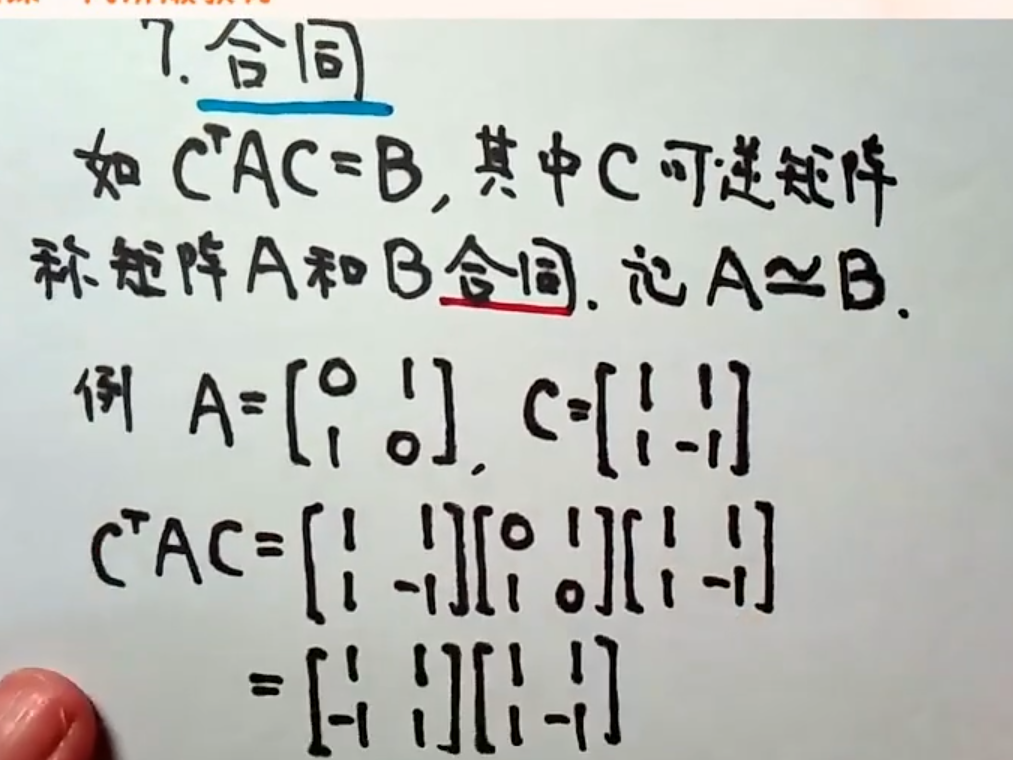 7. 合同
如 CᵀAC=B, 其中 C 可逆矩阵
称矩阵 A 和 B 合同. 记 A≃B.
例 A=[0 1; 1 0], C=[1 1; 1 -1]
CᵀAC=[1 1; 1 -1][0 1; 1 0][1 1; 1 -1]
=[1 1; -1 1][1 1; 1 -1]